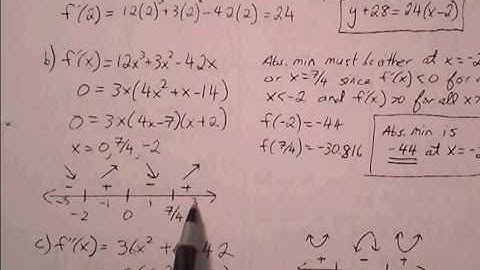 f'(2) = 12(2)³+3(2)²-42(2) = 24
y+28=24(x-2)
b) f'(x) = 12x³+3x²-42x
0 = 3x(4x²+x-14)
0 = 3x(4x-7)(x+2)
x = 0, 7/4, -2
- + - +
-3 -1 1
-2 0 7/4
Abs. min must be either at x=-2
or x=7/4 since f'(x)<0 for
x<-2 and f'(x)>0 for all x>
f(-2) = -44
f(7/4) = -30.816
Abs. min is
-44 at x=-
c) f'(x) = 36x² + 42
+ - +